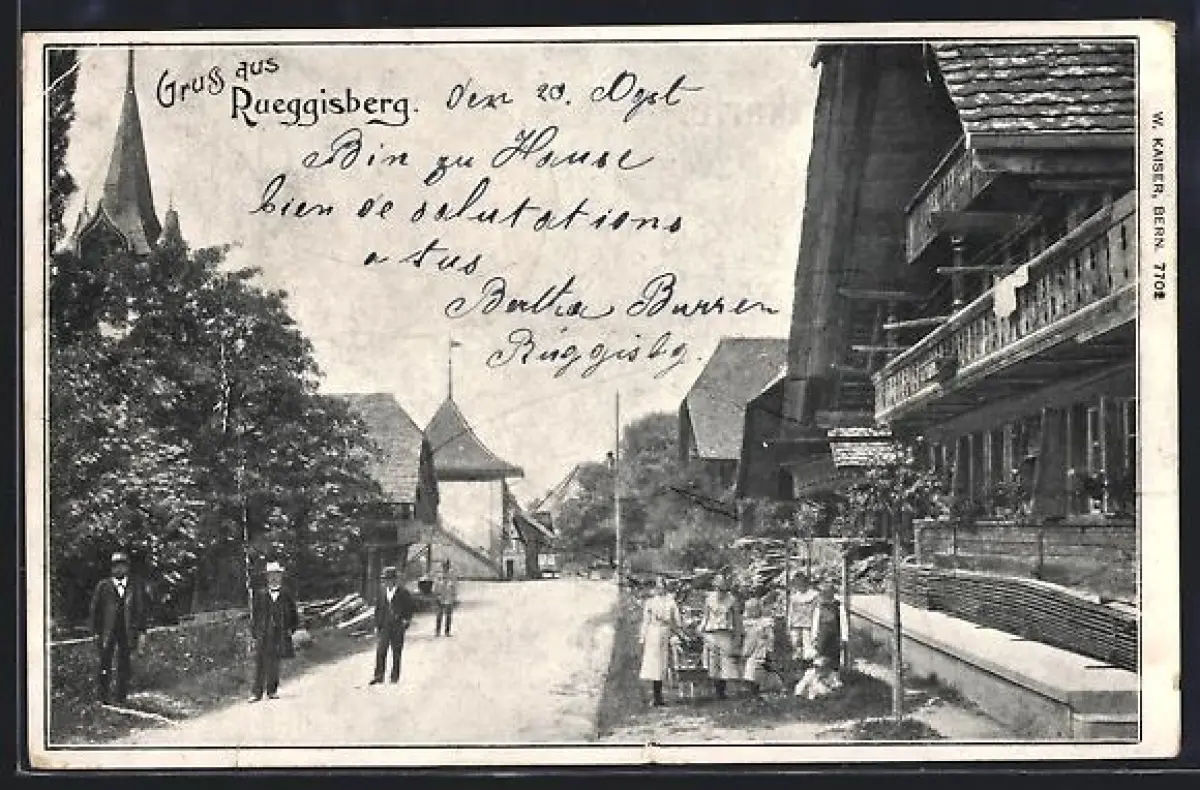 Gruß aus
Rueggisberg.
den 20. Ogst
Bin zu Hause
bien de salutations
a tus
Bertha Burren
Rüggisbg.
W. KAISER, BERN. 7702